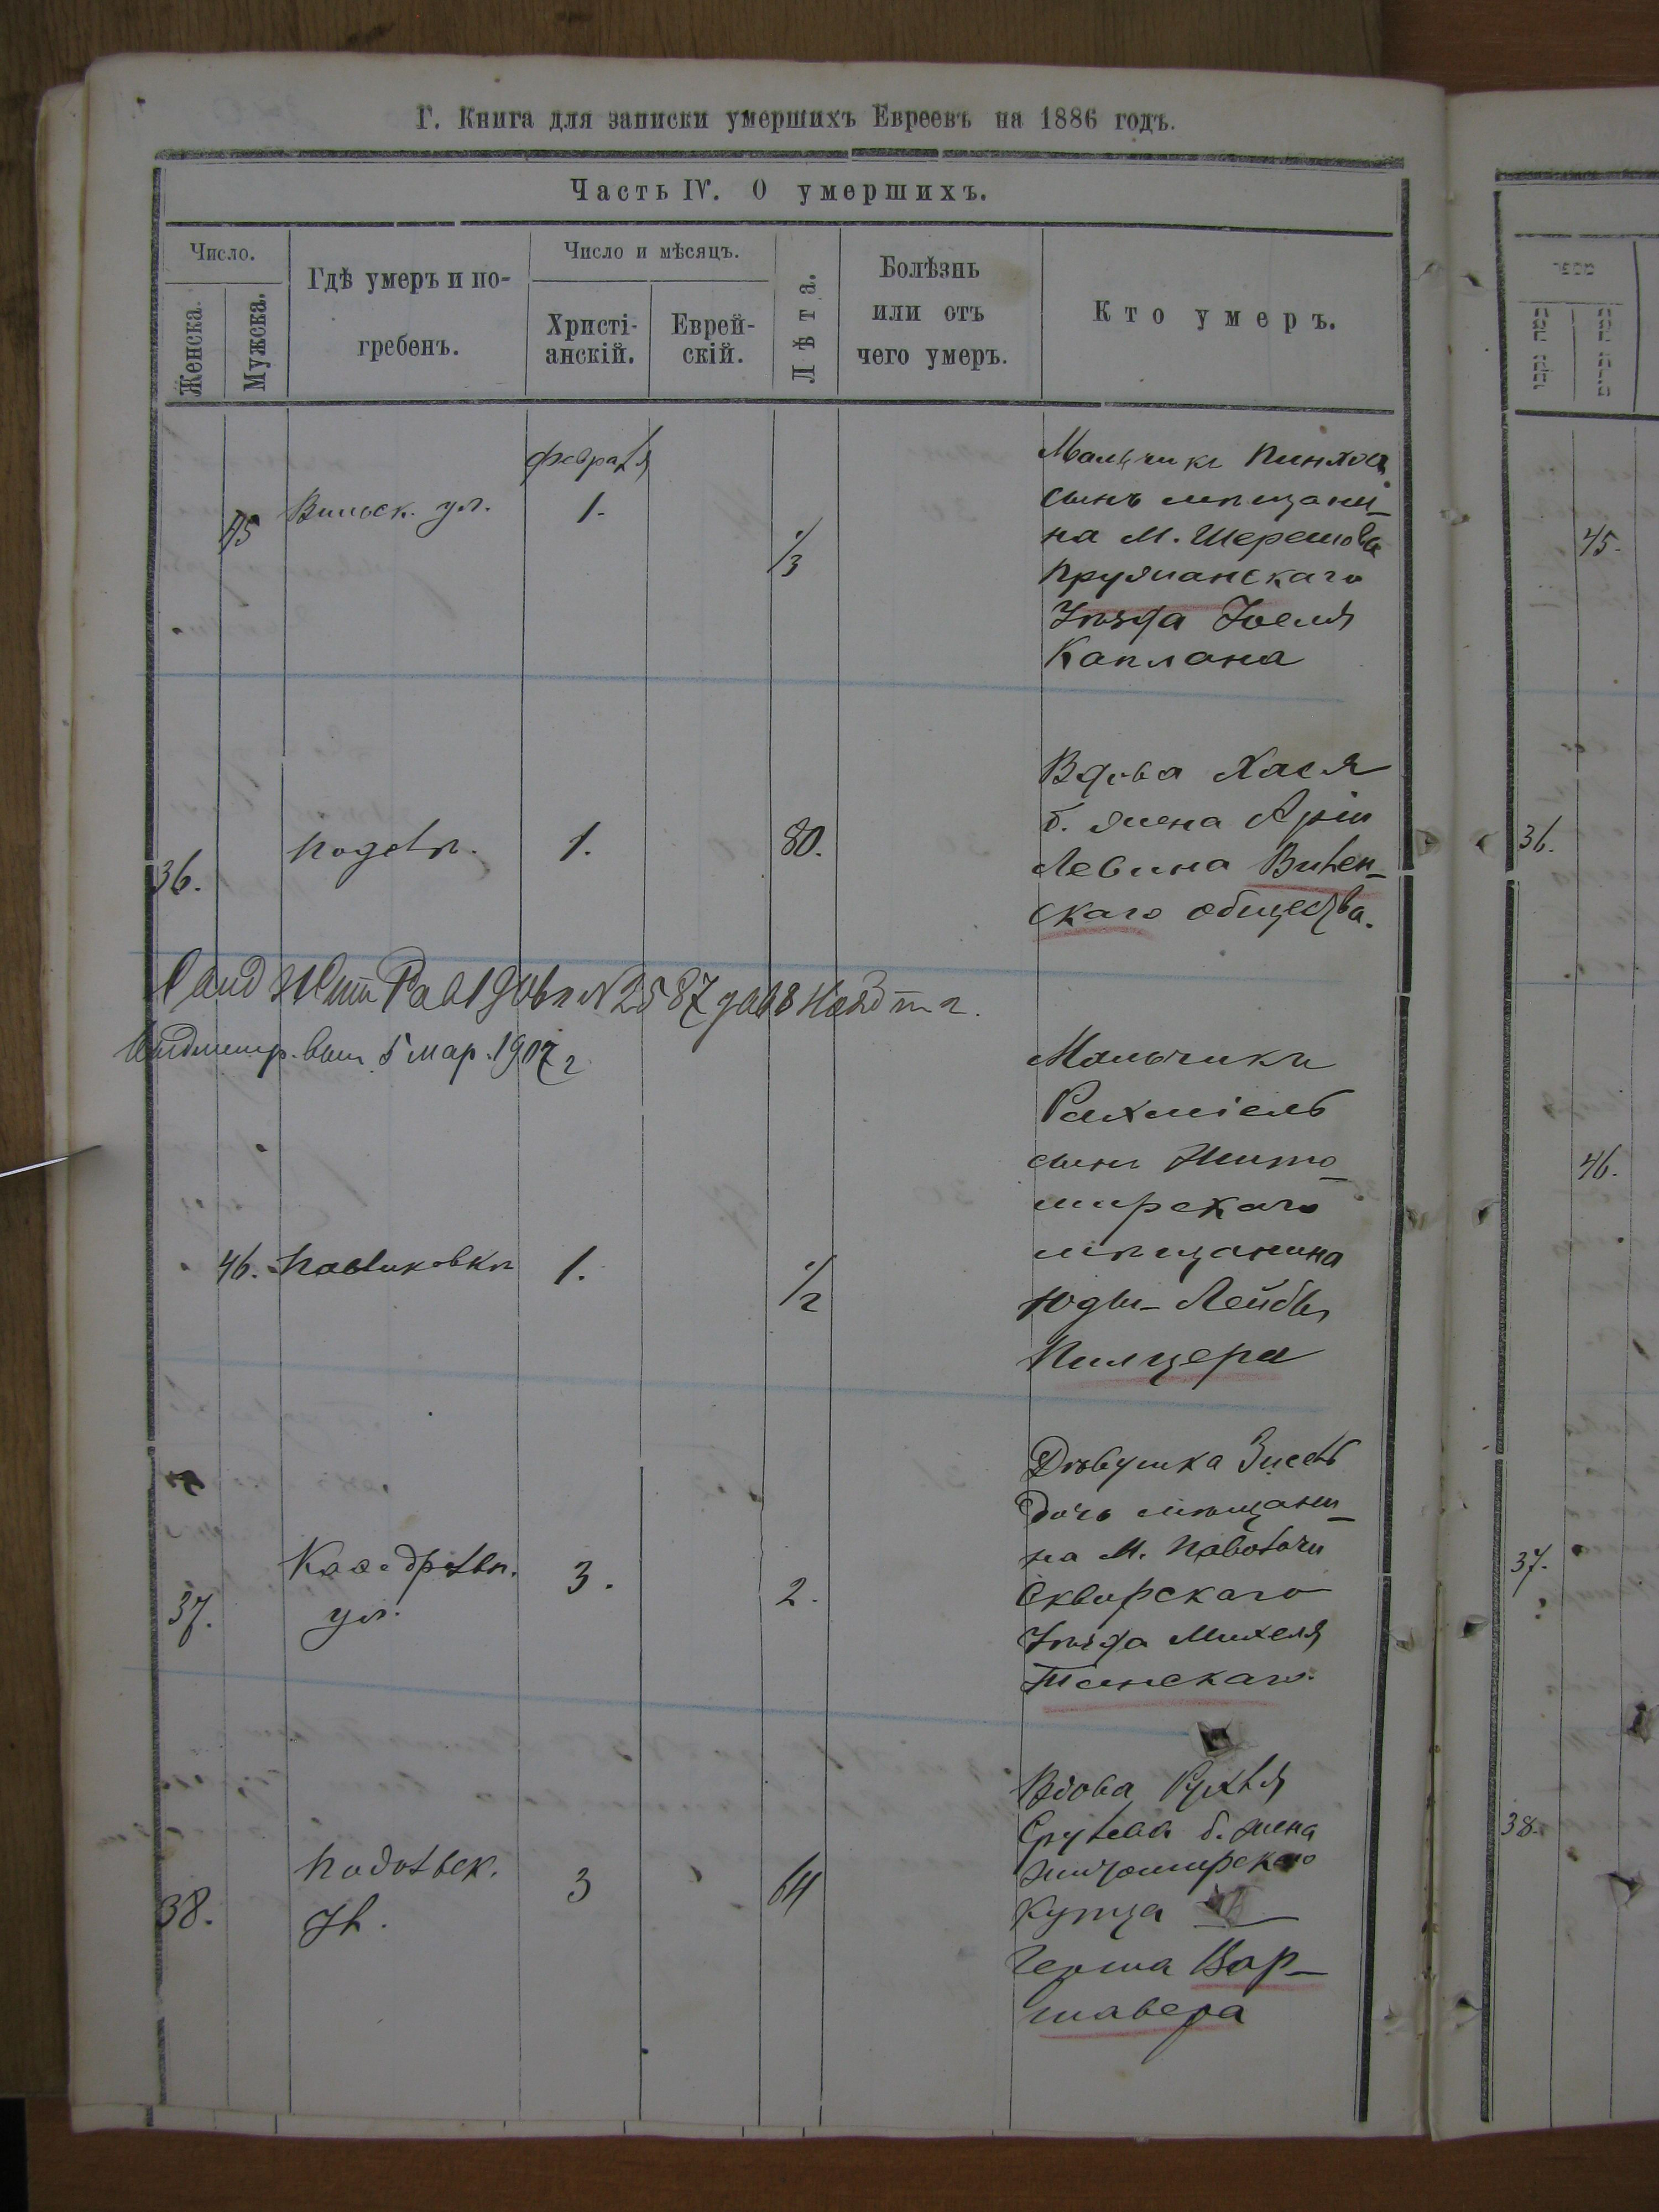 Г. Книга для записки умершихъ Евреевъ на 1886 годъ.
Часть IV. О умершихъ.
Число.
Женска.
Мужска.
Гдѣ умеръ и по-
гребенъ.
Число и мѣсяцъ.
Христі-
анскій.
Еврей-
скій.
Лѣта.
Болѣзнь
или отъ
чего умеръ.
Кто умеръ.
февраля
45
Вильск. ул.
1.
1/3
Мальчикъ Пинхос
сынъ мѣщани-
на М. Шерешова
Пружанскаго
Уѣзда Іоеля
Каплана
36.
1.
80.
Вдова Хася
б. жена Арін
Левина Вилен-
скаго общества.
N 2587
5 мар. 1907 г
46.
Павликовкѣ
1.
1/2
Мальчикъ
Рахміель
сынъ Жито-
мирскаго
мѣщанина
Юды-Лейбы
Пилцера
37.
Каѳедральн.
ул.
3.
2.
Дѣвушка
дочь мѣщани-
на М. Паволочи
Сквирскаго
Уѣзда Михеля
38.
Подольск.
Ул.
3
64
Вдова Рухля
Срулева б. жена
житомирскаго
Купца
Герша Вар-
шавера
מספר
45.
36.
46.
37.
38.